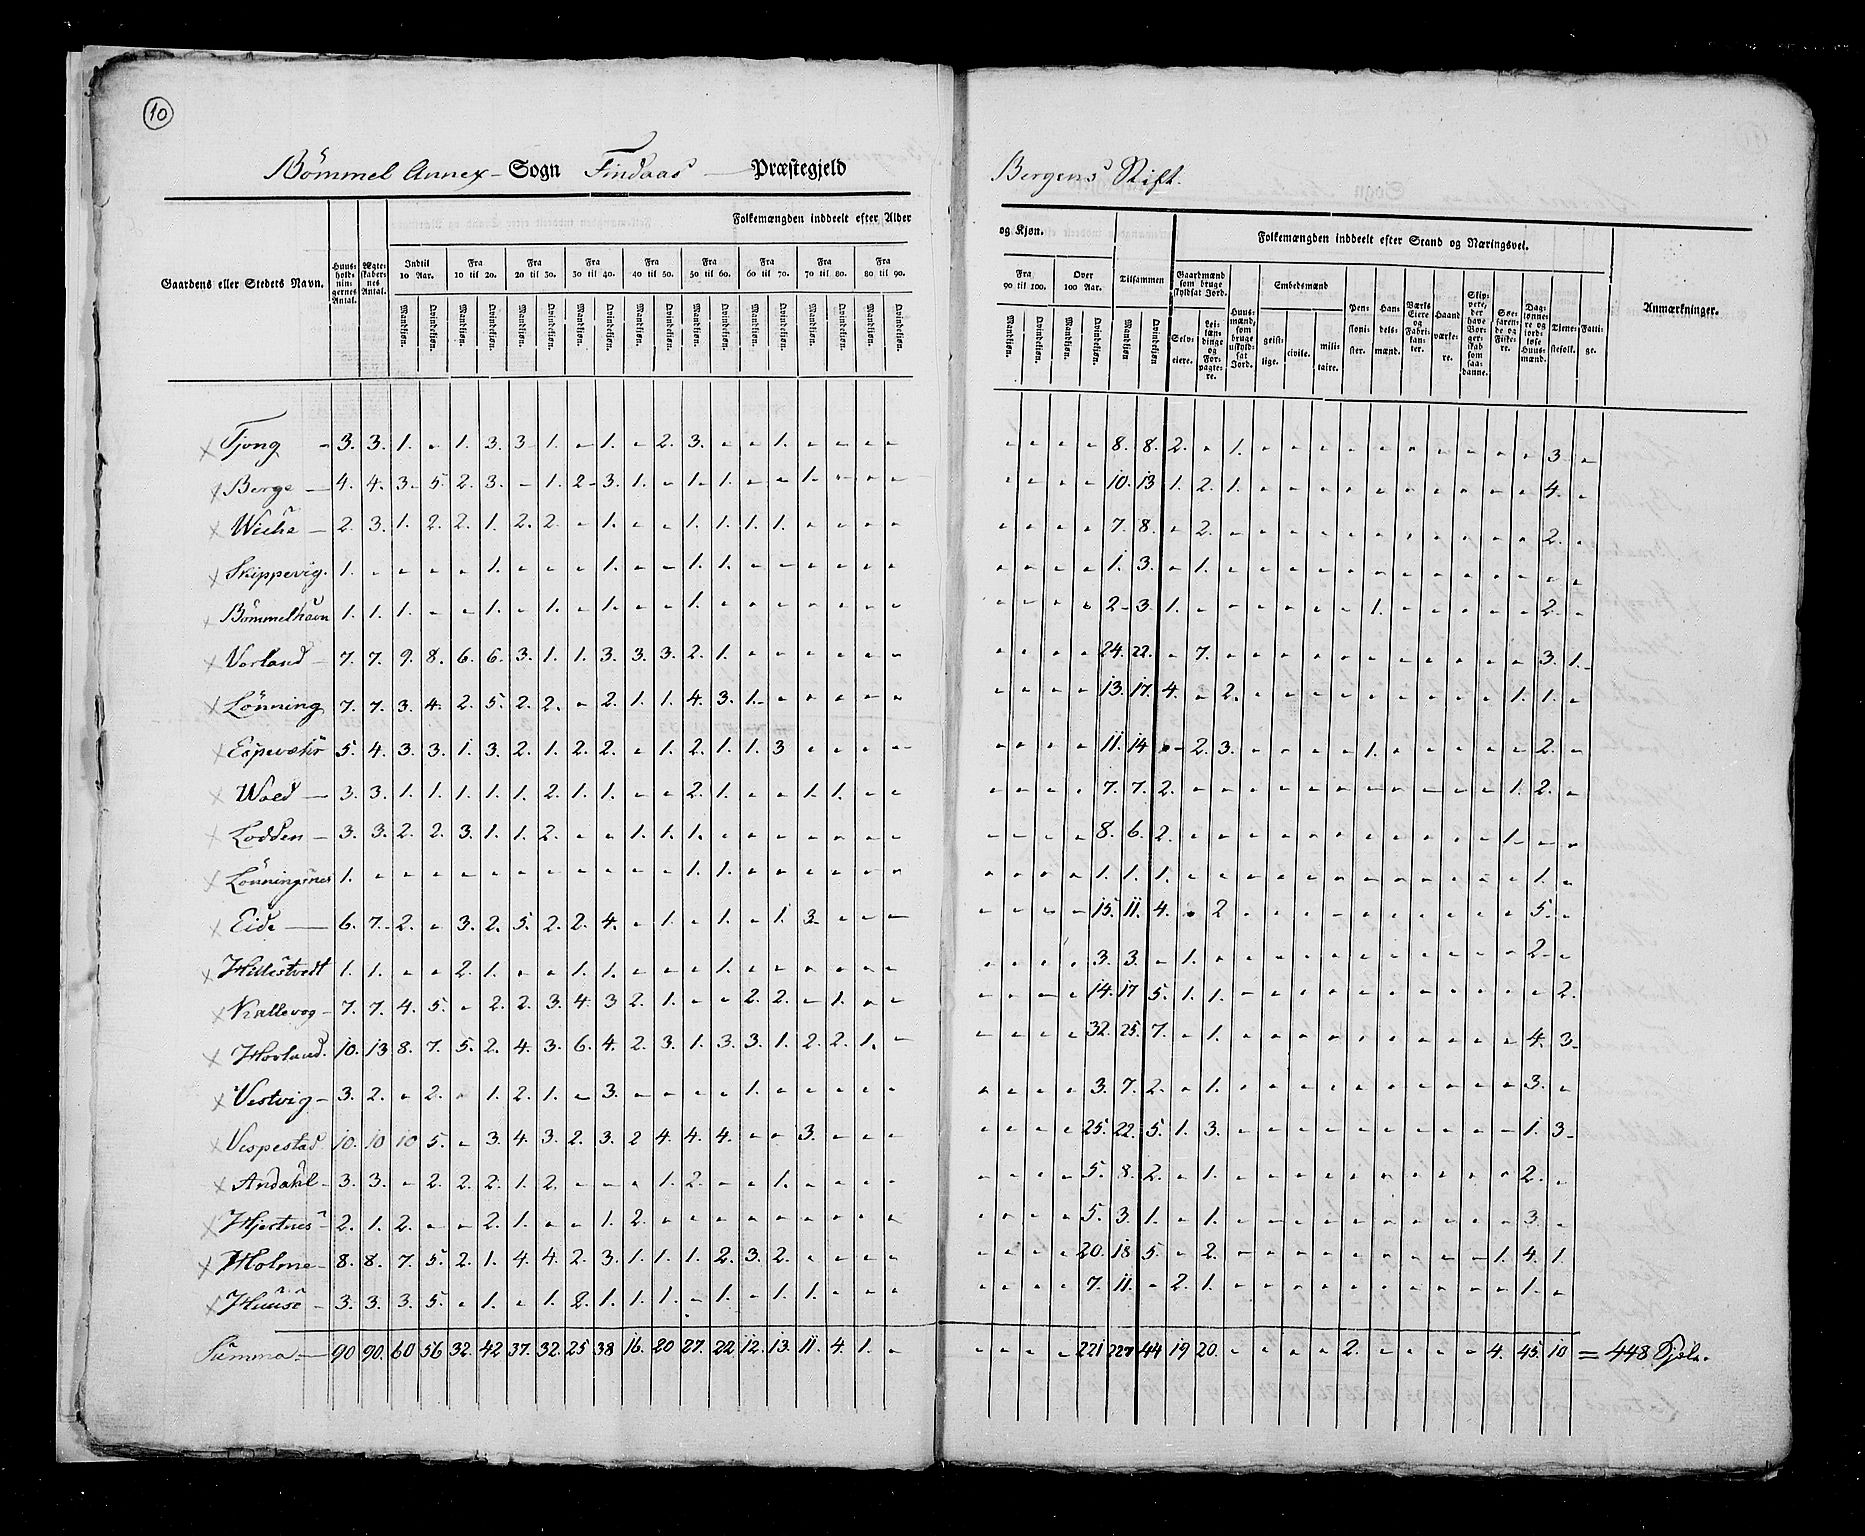 10
Bömmel Annex- Sogn Findaas Præstegjeld
Bergens Stift.
Gaardens eller Stedets Navn. | Huus-hold-nin-gernes Antal. | Ægte-skaber-nes Antal. | Folkemængden inddeelt efter Alder
og Kjøn. | Tilsammen | Folkemængden inddeelt efter Stand og Næringsvei. | Anmærkninger.
Indtil 10 Aar. | Fra 10 til 20. | Fra 20 til 30. | Fra 30 til 40. | Fra 40 til 50. | Fra 50 til 60. | Fra 60 til 70. | Fra 70 til 80. | Fra 80 til 90.
Fra 90 til 100. | Over 100 Aar.
Mandkjøn. Qvindekjøn. Mandkjøn. Qvindekjøn. Mandkjøn. Qvindekjøn. Mandkjøn. Qvindekjøn. Mandkjøn. Qvindekjøn. Mandkjøn. Qvindekjøn. Mandkjøn. Qvindekjøn. Mandkjøn. Qvindekjøn. Mandkjøn. Qvindekjøn.
Mandkjøn. Qvindekjøn. Mandkjøn. Qvindekjøn. Mandkjøn Qvindekjøn
Gaardmænd som bruge skyldsat Jord. | Selv-eiere. | Lei-læn-dinge og For-pagte-re. | Huus-mænd, som bruge uskyld-sat Jord. | Embedsmænd | geist-lige. | civile. | mili-taire. | Pen-sioni-ster. | Han-dels-mænd. | Værks Eiere og Fabri-kan-ter. | Haand værke-re. | Skip-pere, der have Bor-ger-skab som saa-danne. | Søe-faren-de og Fiske-re. | Dag-lønne-re og jord-løse Huus-mænd. | Tjene-stefolk. | Fatti-ge.
Tjong - 3. 3. 1. - 1. 3. 3. 1. - 1. - 2. 3. - - 1. - - - - | - - - - 8. 8. 2. - 1. - - - - - - - - - - 3. -
Berge - 4. 4. 3. 5. 2. 3. - 1. 2. 3. 1. - 1. 1. - - 1. - - - | - - - - 10. 13. 1. 2. 1. - - - - - - - - - - 4. -
Wiche - 2. 3. 1. 2. 2. 1. 2. 2. - 1. - - 1. 1. 1. 1. - - - - | - - - - 7. 8. - 2. - - - - - - - - - - - 2. -
Skippevig. 1. - - - - 1. - - - 1. - - 1. 1. - - - - - - | - - - - 1. 3. - 1. - - - - - - - - - - - - -
Bömmelhavn 1. 1. 1. - - 1. - 1. - 1. - - 1. - - - - - - - | - - - - 2. 3. 1. - - - - - - 1. - - - - - 2. -
Vorland - 7. 7. 9. 8. 6. 6. 3. 1. 1. 3. 3. 3. 2. 1. - - - - - - | - - - - 24. 22. - 7. - - - - - - - - - - - 3. 1.
Lönning 7. 7. 3. 4. 2. 5. 2. 2. - 2. 1. 1. 4. 3. 1. - - - - - | - - - - 13. 17. 4. - 2. - - - - - - - - - 1. 1. -
Espevær 5. 4. 3. 3. 1. 3. 2. 1. 2. 2. - 1. 2. 1. 1. 3 - - - - | - - - - 11. 14 - 2. 3. - - - - 1. - - - - - 2. -
Wold - 3. 3. 1. 1. 1. 1. 1. 2. 1. 1. - - 2. 1. - - 1. 1. - - | - - - - 7. 7. 2. - - - - - - - - - - - 1. 2. -
Lodden - 3. 3. 2. 2. 3. 1. 1. 2. - - 1. 1. 1. - - - - - - - | - - - - 8. 6. 2. - - - - - - - - - - - 1. - -
Lönningsnes 1. - - - - - - - - - - - 1. 1. - - - - - - | - - - - 1. 1. 1. - - - - - - - - - - - - 1. -
Eide - 6. 7. 2. - 3. 2. 5. 2. 2. 4. - 1. - 1. - 1. 3. - - - | - - - - 15. 11. 4. - 2 - - - - - - - - - - 5. -
Hillestvedt 1. 1. - - 2. 1. - - 1. 1. - - - 1. - - - - - - | - - - - 3. 3. - 1. - - - - - - - - - - - 2. -
Kallevog - 7. 7. 4. 5. - 2. 2. 3. 4. 3 2. 1. - - 2. 2. - 1. - - | - - - - 14. 17 5. 1. 1. - - - - - - - - - - - 2.
Hovland. 10. 13 8. 7. 5. 2. 4. 3. 6. 4. 2. 3. 1. 3. 3. 1. 2. 2. 1. - | - - - - 32. 25. 7. - 1. - - - - - - - - - - 4. 3.
Vestvig - 3. 2. - 2. - 1. 2. 1. - 3. - - - - 1. - - - - - | - - - - 3. 7. 2. - 1. - - - - - - - - - - 3. -
Vespestad 10. 10 10 5. - 3. 4. 3. 2. 3. 2 4. 4. 4. - - 3. - - - | - - - - 25. 22. 5. 1. 3. - - - - - - - - - - 1. 3.
Andahl - 3. 3. - 2. 2. 2. 1. 2. - - - 1. 2. - - 1. - - - - | - - - - 5. 8. 2. - 1. - - - - - - - - - - 2. -
Hjertnes - 2. 1. 2. - - 2. 1. - - 1. 2. - - - - - - - - - | - - - - 5. 3. 1. - 1. - - - - - - - - - - 3. -
Holme - 8. 8. 7. 5. 2. 1. 4. 4. 2. 3. 1. 1. 1. 2. 3. 2. - - - - | - - - - 20. 18. 5. - 2. - - - - - - - - - 1. 4. 1.
Huuse - 3. 3. 3. 5. - 1. - 1. 2. 1. 1. 1. - 1. - 1. 1. - - - | - - - - 7. 11. - 2. 1. - - - - - - - - - - 1. -
Summa. - 90 90. 60 56 32. 42 37. 32. 25 38 16. 20 27. 22 12. 13. 11. 4. 1. - | - - - - 221 227 44 19 20. - - - - 2. - - - - 4. 45. 10 = 448 Sjele.